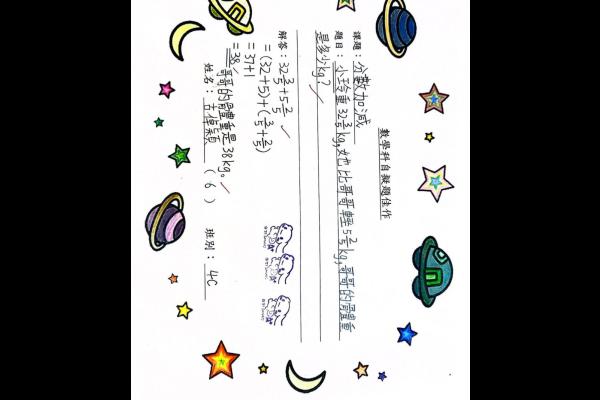 數學科自擬題佳作
課題：分數加減
題目：小玲重32 3/5 kg，她比哥哥輕5 2/5 kg，哥哥的體重
是多少kg？
解答：32 3/5 + 5 2/5
= (32+5)+(3/5+2/5)
= 37+1
= 38
哥哥的體重是38kg。
姓名：古倬穎（6） 班別：4C